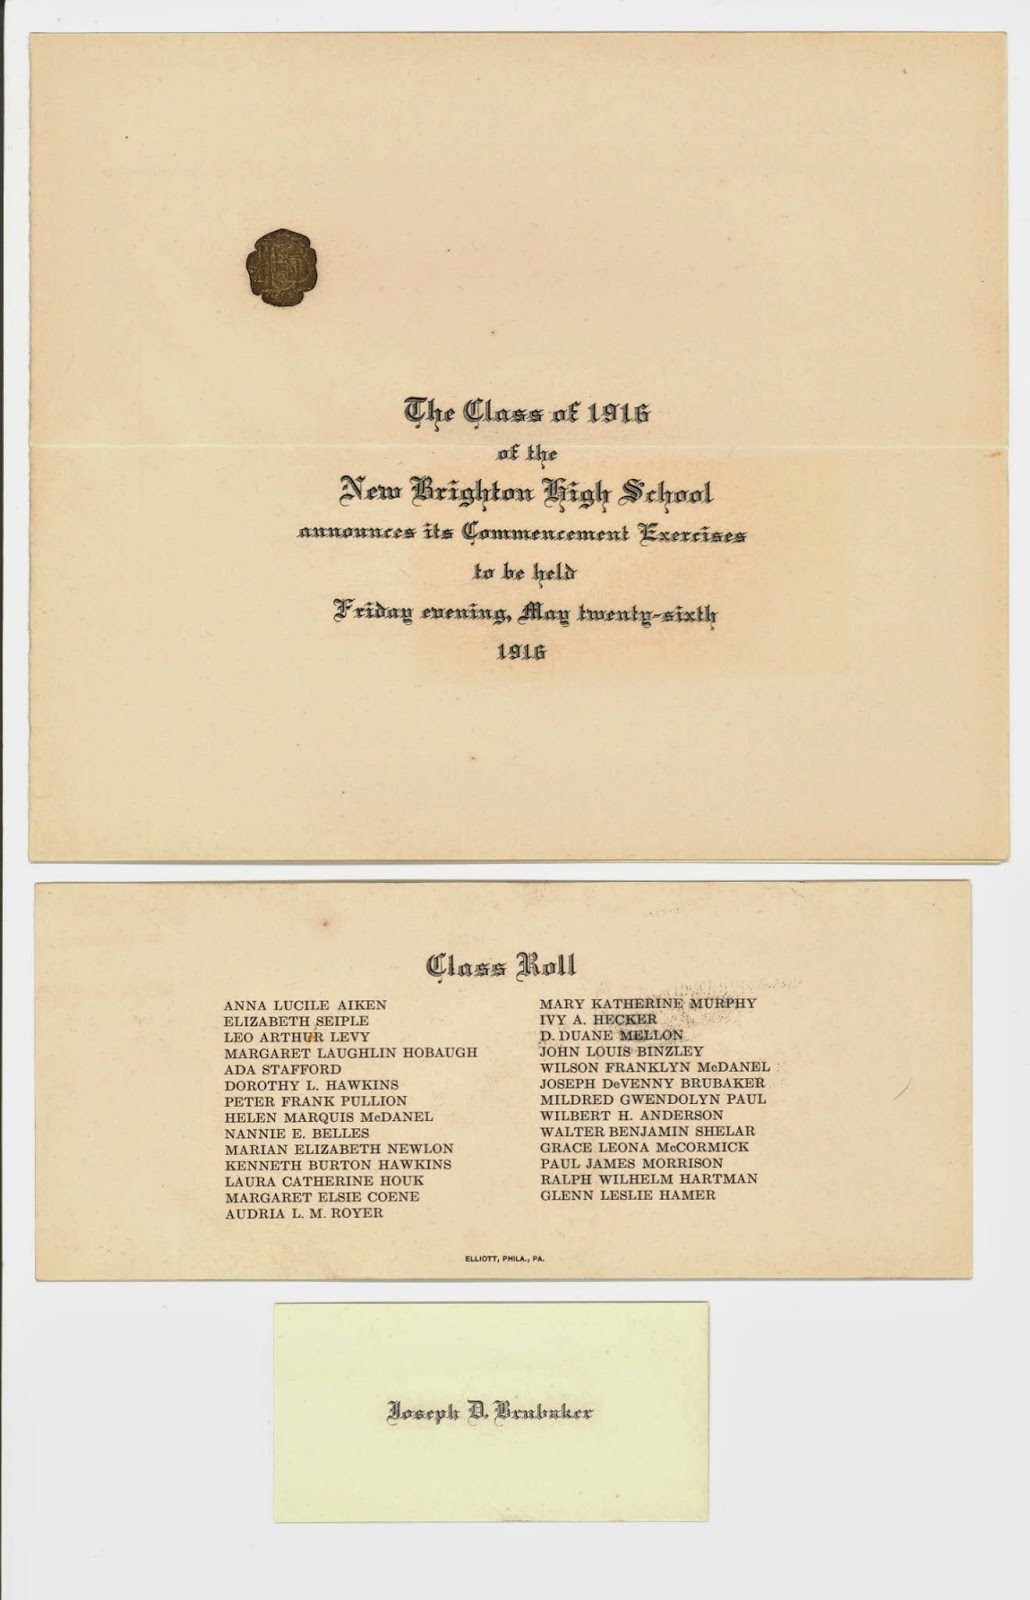 The Class of 1916
of the
New Brighton High School
announces its Commencement Exercises
to be held
Friday evening, May twenty-sixth
1916
Class Roll
ANNA LUCILE AIKEN
ELIZABETH SEIPLE
LEO ARTHUR LEVY
MARGARET LAUGHLIN HOBAUGH
ADA STAFFORD
DOROTHY L. HAWKINS
PETER FRANK PULLION
HELEN MARQUIS McDANEL
NANNIE E. BELLES
MARIAN ELIZABETH NEWLON
KENNETH BURTON HAWKINS
LAURA CATHERINE HOUK
MARGARET ELSIE COENE
AUDRIA L. M. ROYER
MARY KATHERINE MURPHY
IVY A. HECKER
D. DUANE MELLON
JOHN LOUIS BINZLEY
WILSON FRANKLYN McDANEL
JOSEPH DeVENNY BRUBAKER
MILDRED GWENDOLYN PAUL
WILBERT H. ANDERSON
WALTER BENJAMIN SHELAR
GRACE LEONA McCORMICK
PAUL JAMES MORRISON
RALPH WILHELM HARTMAN
GLENN LESLIE HAMER
ELLIOTT, PHILA., PA.
Joseph D. Brubaker